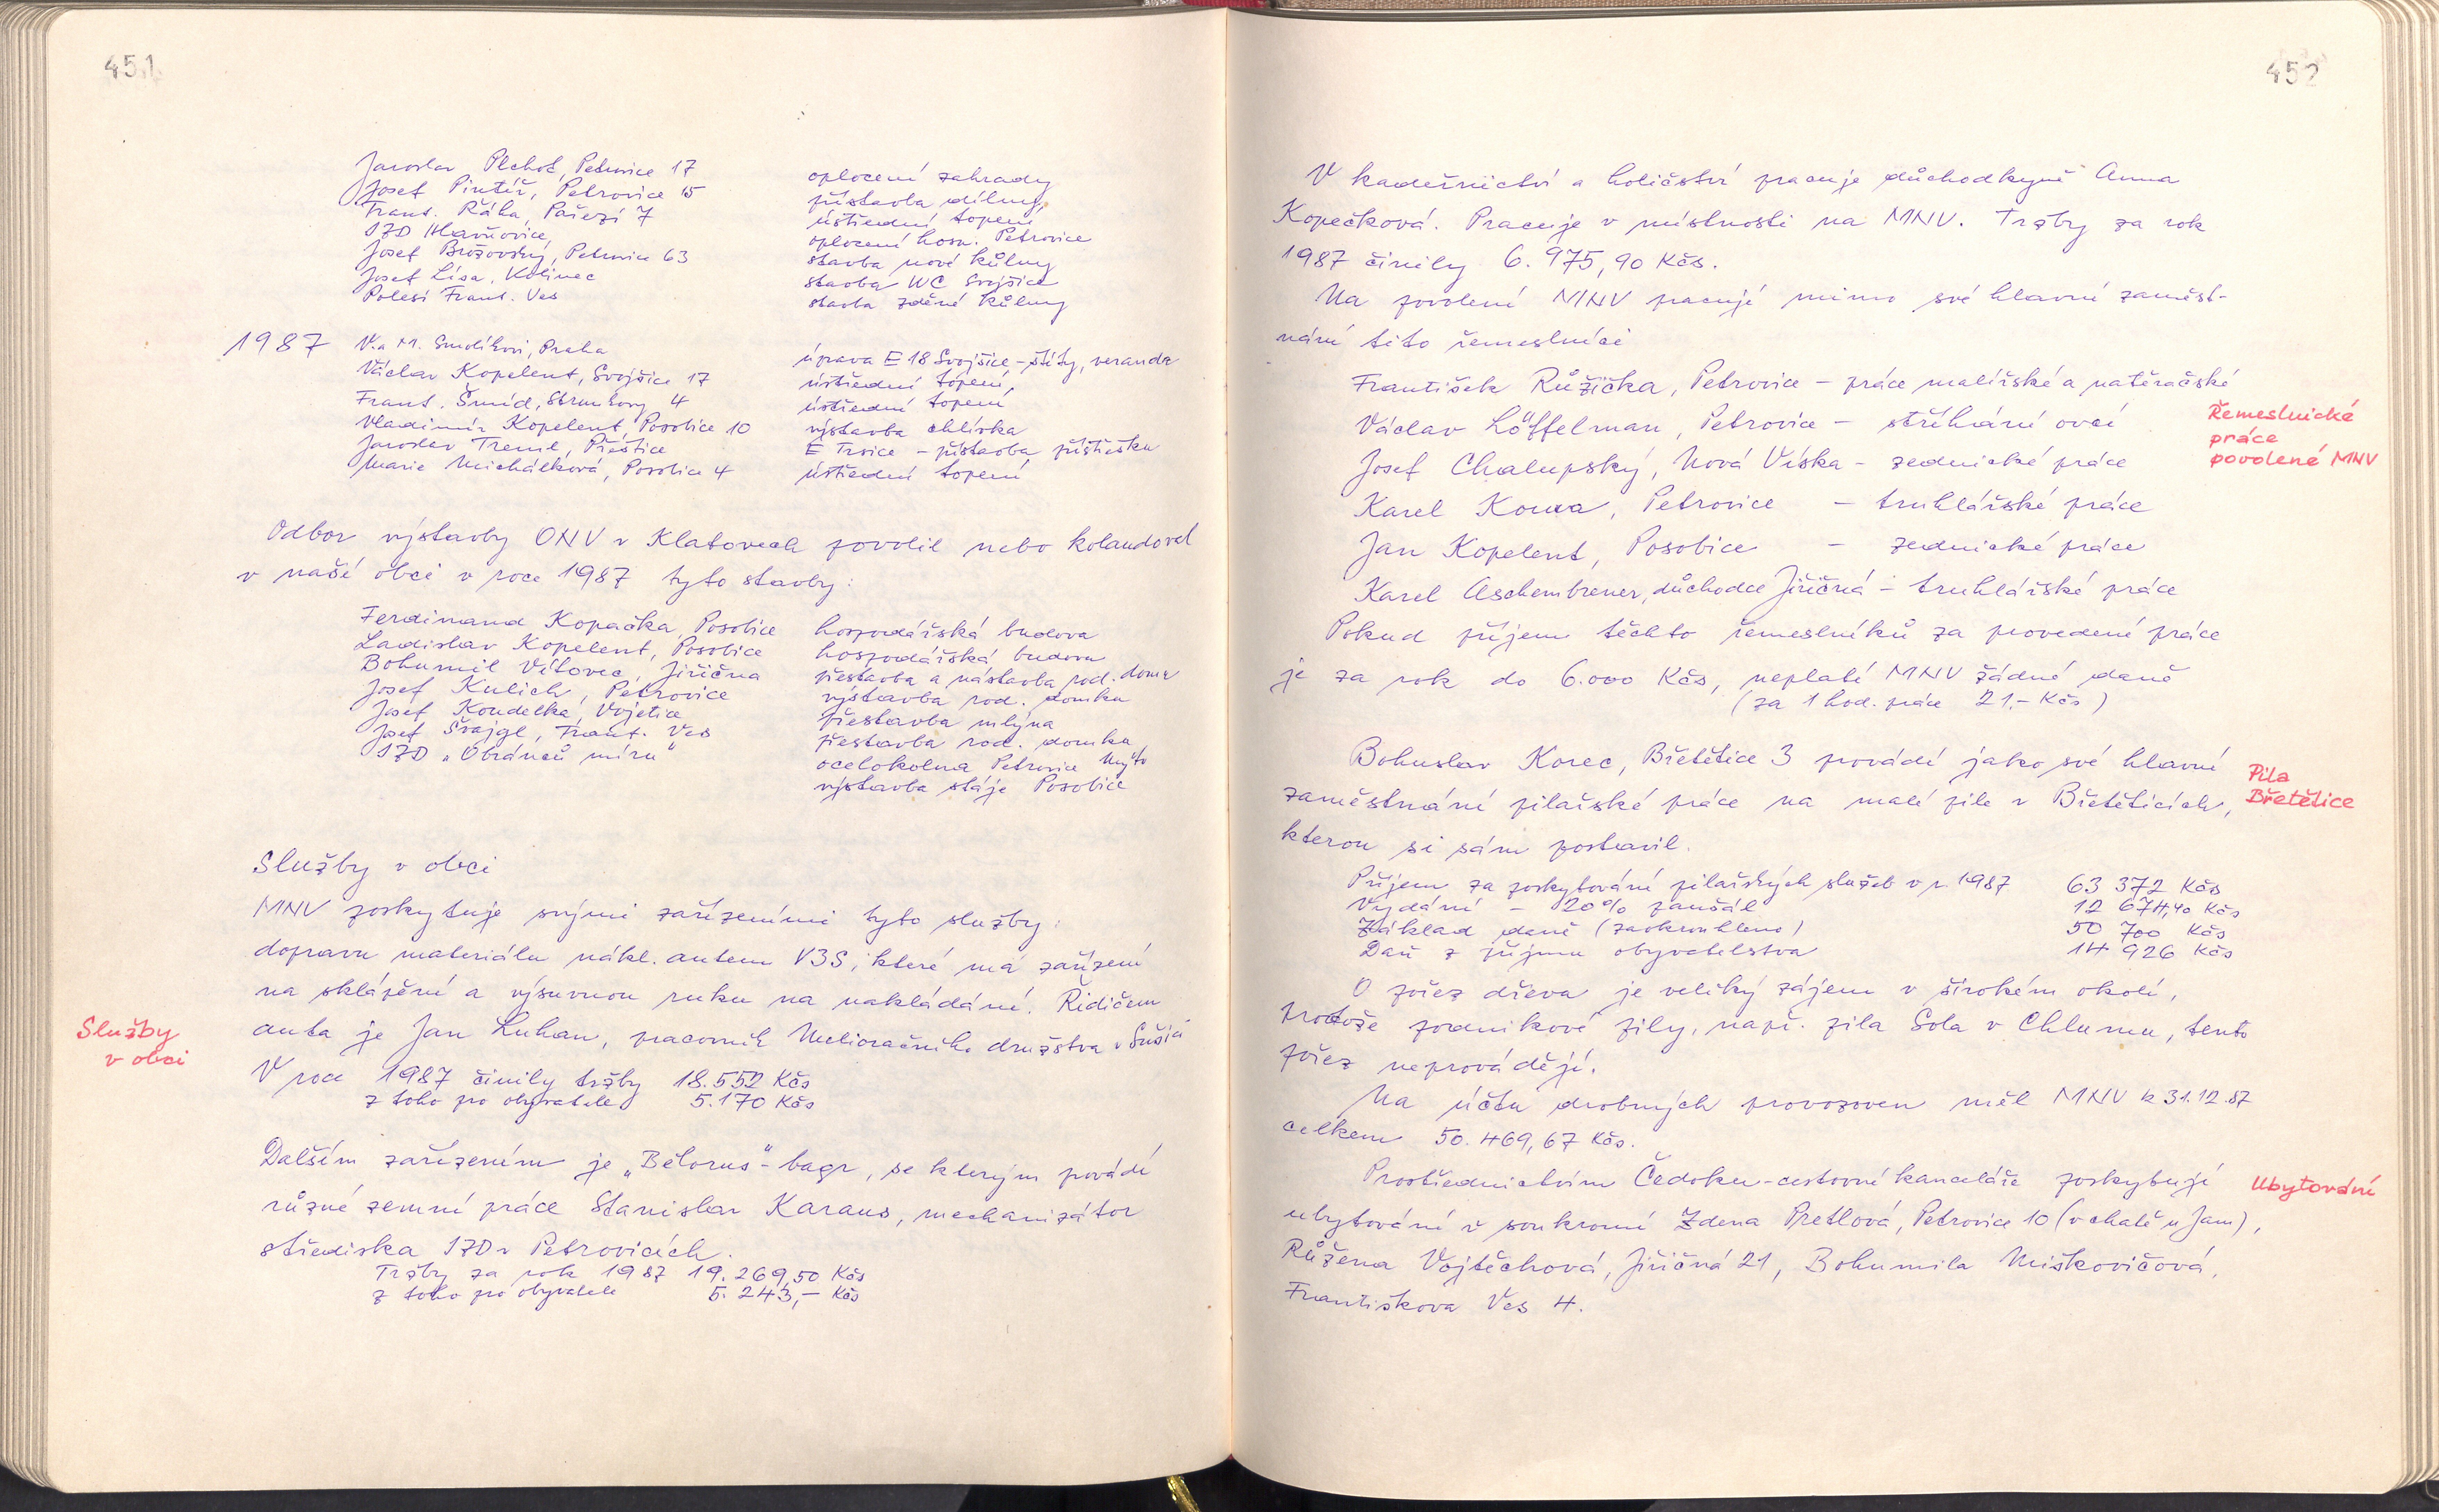 451
Jaroslav Plchot, Petrovice 17 oplocení zahrady
Josef Pintíř, Petrovice 15 přístavba dílny,
Frant. Řáha, Pařezí 7 ústřední topení
JZD Hlavňovice, oplocení hosp. Petrovice
Josef Brožovský, Petrovice 63 stavba nové kůlny
Josef Lísa, Kolinec stavba WC Svojšice
Polesí Frant. Ves stavba zděné kůlny
1987 V. a M. Smolíkovi, Praha úprava E 18 Svojšice - štíty, veranda
Václav Kopelent, Svojšice 17 ústřední topení,
Frant. Šmíd, Strunkovy 4 ústřední topení
Vladimír Kopelent, Posobice 10 výstavba chlívka
Jaroslav Treml, Přeštice E Trsice - přístavba přístřešku
Marie Michálková, Posobice 4 ústřední topení
Odbor výstavby ONV v Klatovech povolil nebo kolaudoval
v naší obci v roce 1987 tyto stavby:
Ferdinand Kopačka, Posobice hospodářská budova
Ladislav Kopelent, Posobice hospodářská budova
Bohumil Vítovec, Jiřičná přestavba a nástavba rod. domu
Josef Kulich, Petrovice výstavba rod. domku
Josef Koudelka, Vojetice přestavba mlýna
Josef Švajgl, Frant. Ves přestavba rod. domku
JZD „Obránců míru" ocelokolna Petrovice Mýto
výstavba stáje Posobice
Služby v obci
MNV poskytuje svými zařízeními tyto služby:
dopravu materiálu nákl. autem V3S, které má zařízení
na sklápění a výsuvnou ruku na nakládání. Řidičem
Služby
v obci
auta je Jan Luhan, pracovník Melioračního družstva v Sušici
V roce 1987 činily tržby 18.552 Kčs
z toho pro obyvatele 5.170 Kčs
Dalším zařízením je „Bělorus"- bagr, se kterým provádí
různé zemní práce Stanislav Karaus, mechanizátor
střediska JZD v Petrovicích.
Tržby za rok 1987 19.269,50 Kčs
z toho pro obyvatele 5.243,- Kčs
452
V kadeřnictví a holičství pracuje důchodkyně Anna
Kopečková. Pracuje v místnosti na MNV. Tržby za rok
1987 činily 6.975,90 Kčs.
Na povolení MNV pracují mimo své hlavní zaměst-
nání tito řemeslníci
František Růžička, Petrovice - práce malířské a natěračské
Václav Löffelman, Petrovice - stříhání ovcí
Řemeslnické
práce
povolené MNV
Josef Chalupský, Nová Víska - zednické práce
Karel Kouva, Petrovice - truhlářské práce
Jan Kopelent, Posobice - zednické práce
Karel Aschenbrener, důchodce Jiřičná - truhlářské práce
Pokud příjem těchto řemeslníků za provedené práce
je za rok do 6.000 Kčs, neplatí MNV žádné daně
(za 1 hod. práce 21,- Kčs)
Bohuslav Korec, Břetětice 3 provádí jako své hlavní
Pila
Břetětice
zaměstnání pilařské práce na malé pile v Břetěticích,
kterou si sám postavil.
Příjem za poskytování pilařských služeb v r. 1987 63 372 Kčs
Vydání - 20% paušál 12 674,40 Kčs
Základ daně (zaokrouhleno) 50 700 Kčs
Daň z příjmu obyvatelstva 14 926 Kčs
O pořez dřeva je veliký zájem v širokém okolí,
protože podnikové pily, např. pila Sola v Chlumu, tento
pořez neprovádějí.
Na účtu drobných provozoven měl MNV k 31.12.87
celkem 50.469,67 Kčs.
Prostřednictvím Čedoku - cestovní kanceláře poskytují
Ubytování
ubytování v soukromí Zdena Pretlová, Petrovice 10 (v chatě u Jam),
Růžena Vojtěchová, Jiřičná 21, Bohumila Miškovičová,
Františkova Ves 4.